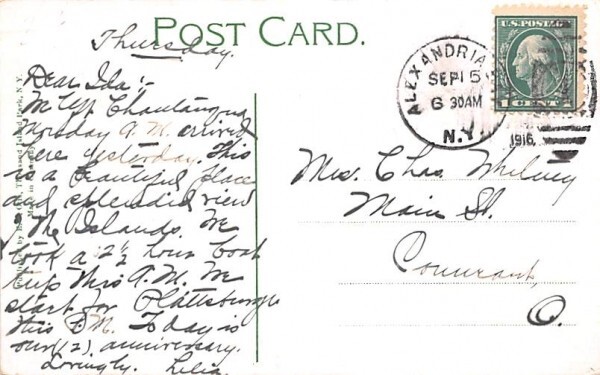 POST CARD.
Thursday.
Dear Ida:-
Chautauqua
A.M. arrived
here yesterday. This
is a beautiful place
and splendid view
of the Islands. We
took a 2½ hour boat
trip this A.M. We
start for Plattsburgh
this P.M. Today is
our (12) anniversary.
Lovingly. Lelia
Thousand Island Park, N.Y.
U.S. POSTAGE
1 CENT 1
ALEXANDRIA
SEP 15
6 30AM
N.Y.
1916
Mrs. Chas. Whitney
Main St.
O.